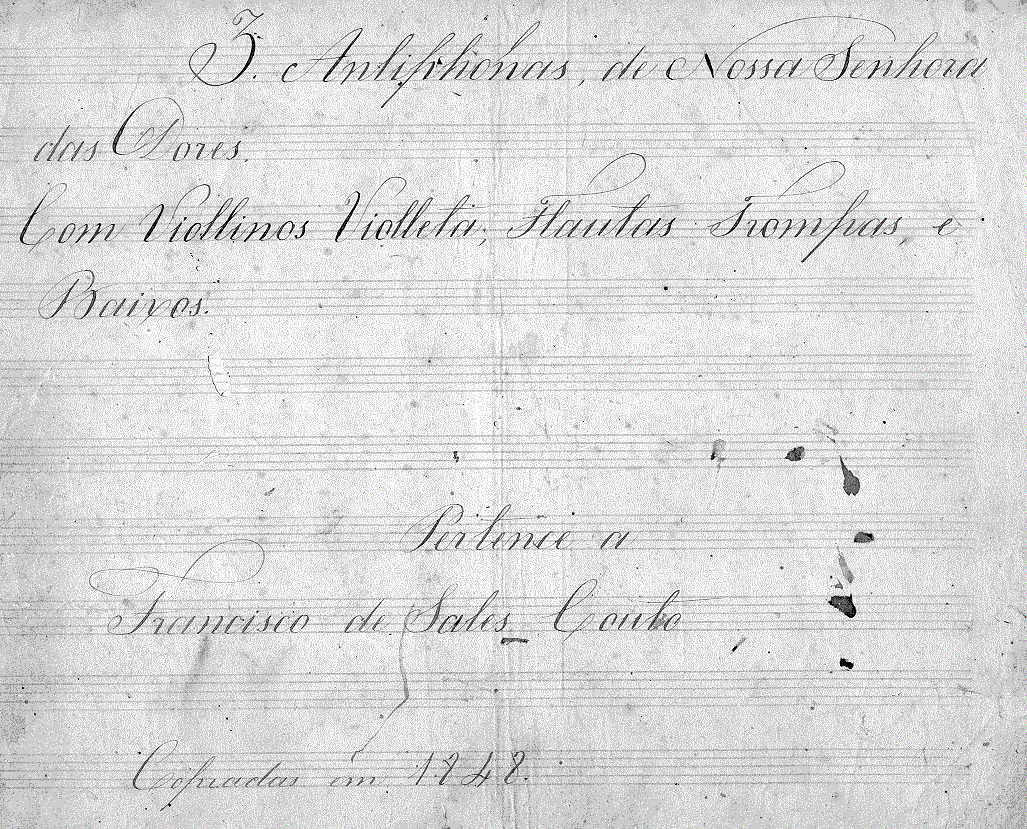 3. Antiphonas, de Nossa Senhora
das Dores.
Com Viollinos Violleta, Flautas Trompas, e
Baixos.
Pertence a
Francisco de Sales Couto
Copiadas em 1848.